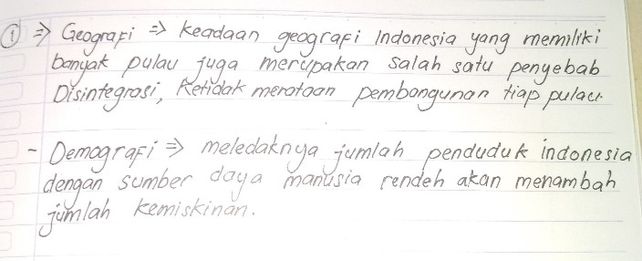 ① ⇒ Geografi ⇒ Keadaan geografi Indonesia yang memiliki
banyak pulau juga merupakan salah satu penyebab
Disintegrasi, Ketidak merataan pembangunan tiap pulau.
- Demografi ⇒ meledaknya jumlah penduduk indonesia
dengan sumber daya manusia rendeh akan menambah
jumlah kemiskinan.